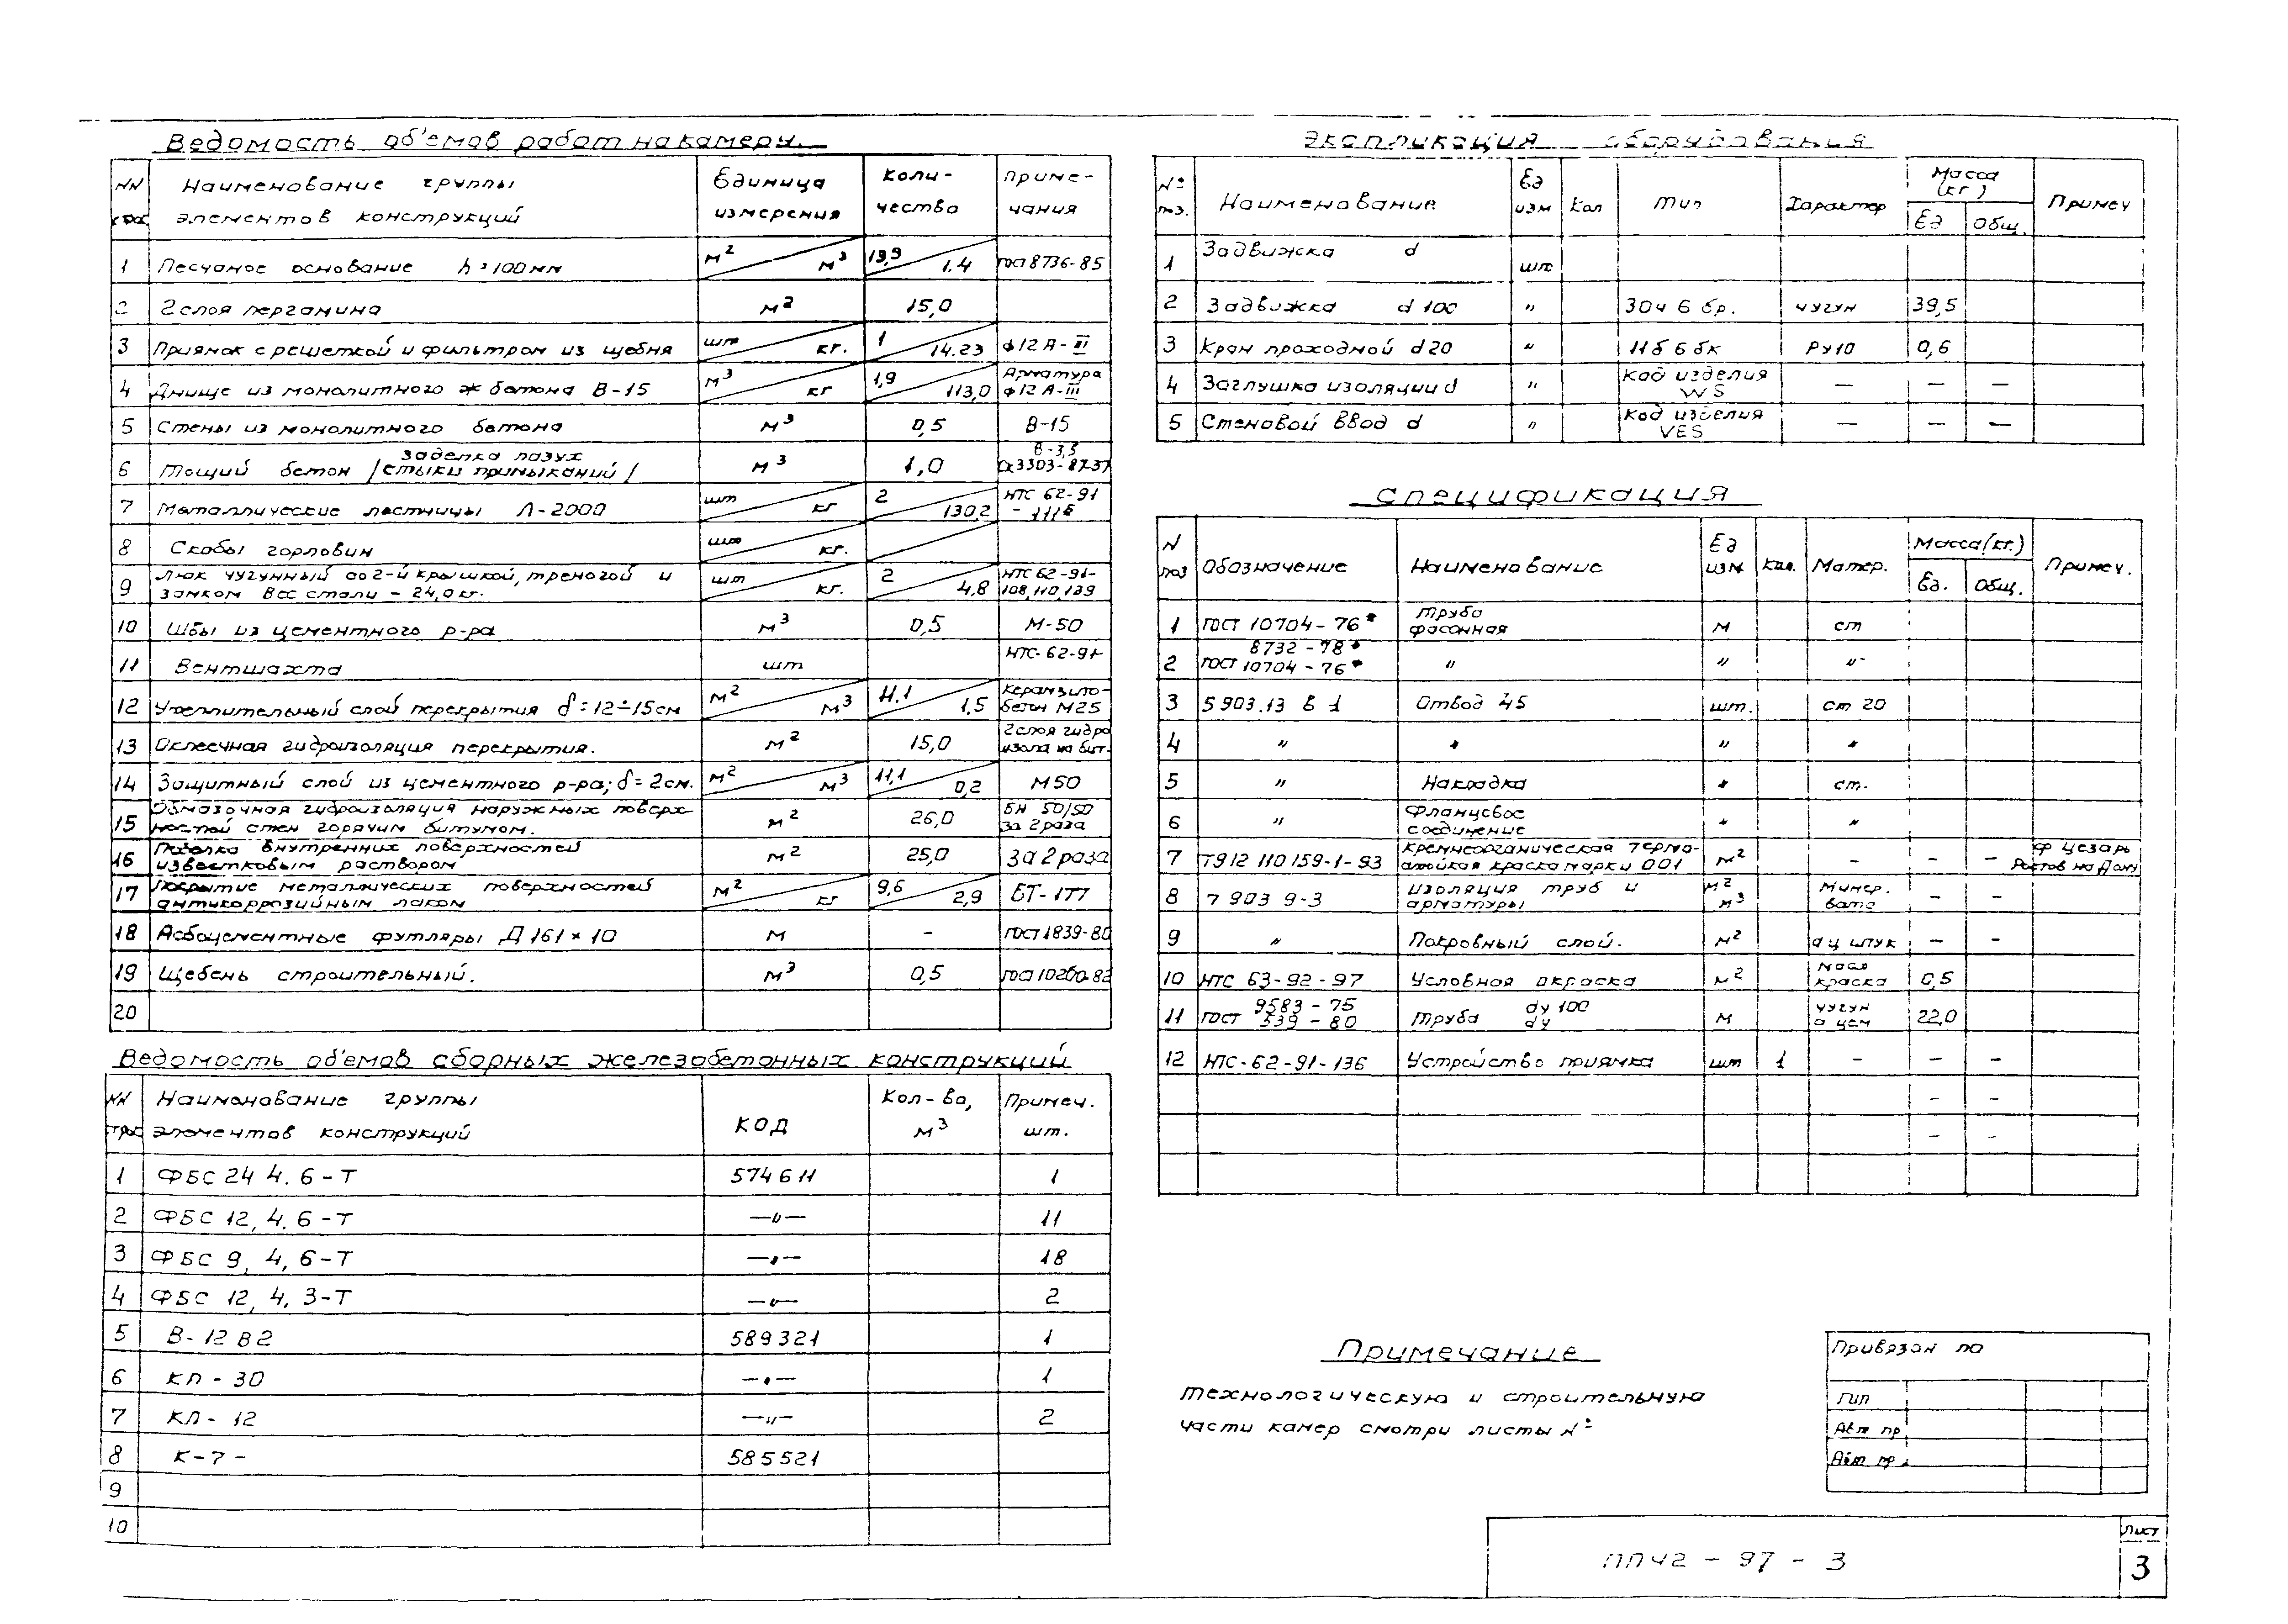 Ведомость об'емов работ на камеры.
NN Наименование группы элементов конструкций Единица измерения Коли-чество Приме-чания
1 Песчаное основание h=100мм м² м³ 13,9 1.4 ГОСТ 8736-85
2 2 слоя пергамина м² 15,0
3 Приямок с решеткой и фильтром из щебня шт кг. 1 14.23 ф12 А-III
4 Днище из монолитного ж бетона В-15 м³ кг 1,9 113,0 Арматура ф12 А-III
5 Стены из монолитного бетона м³ 0,5 В-15
6 Тощий бетон /заделка пазух стыки примыканий/ м³ 1,0 В-3,5
7 Металлические лестницы Л-2000 шт кг 2 130,2 НТС 62-91
8 Скобы горловин шт кг.
9 Люк чугунный со 2-й крышкой, треногой и замком Вес стали - 24,0 кг. шт кг. 2 4,8 НТС 62-91-108,110,139
10 Швы из цементного р-ра м³ 0,5 М-50
11 Вентшахта шт НТС-62-91-
12 Утеплительный слой перекрытия δ=12÷15см м² м³ 11.1 1.5 Керамзито-бетон М25
13 Оклеечная гидроизоляция перекрытия. м² 15,0 2 слоя гидро изола на бит.
14 Защитный слой из цементного р-ра; δ=2см. м² м³ 11,1 0,2 М50
15 Обмазочная гидроизоляция наружных поверх ностей стен горячим битумом. м² 26,0 БН 50/50 за 2 раза
16 Побелка внутренних поверхностей известковым раствором м² 25,0 За 2 раза
17 Покрытие металлических поверхностей антикоррозийным лаком м² кг 9,6 2,9 БТ-177
18 Асбоцементные футляры Д 161×10 м - ГОСТ 1839-80
19 Щебень строительный. м³ 0,5 ГОСТ 10260-82
20
Ведомость об'емов сборных железобетонных конструкций
NN Наименование группы элементов конструкций КОД Кол-во, м³ Примеч. шт.
1 ФБС 24 4. 6-Т 574611 1
2 ФБС 12, 4. 6-Т —"— 11
3 ФБС 9, 4, 6-Т —"— 18
4 ФБС 12, 4. 3-Т —"— 2
5 В-12 В2 589321 1
6 КП-30 —"— 1
7 КЛ-12 —"— 2
8 К-7- 585521
9
10
Экспликация оборудования
№ поз. Наименование Ед изм Кол Тип Характер Масса (кг) Ед Общ. Примеч
1 Задвижка d шт
2 Задвижка d 100 " 30ч 6 бр. чугун 39,5
3 Кран проходной d20 " 11б 6 бк РУ10 0,6
4 Заглушка изоляции d " Код изделия WS — — —
5 Стеновой Ввод d " Код изделия VES — — —
Спецификация
N поз Обозначение Наименование Ед изм Кол. Матер. Масса(кг.) Ед. Общ. Примеч.
1 ГОСТ 10704-76* Труба фасонная м ст
2 ГОСТ 8732-78* 10704-76* " " "
3 5 903.13 В 1 Отвод 45 шт. ст 20
4 " " " "
5 " Накладка " ст.
6 " Фланцевое соединение " "
7 Т912 110 159-1-93 Кремнеорганическая термо-стойкая краска марки 001 м² - - - Ф Цезарь Ростов на Дону
8 7 903 9-3 Изоляция труб и арматуры м² м³ Минер. вата - -
9 " Покровный слой. м² а ц штук - -
10 НТС 63-92-97 Условная окраска м² масл краска 0,5
11 ГОСТ 9583-75 539-80 Труба dу 100 dу м чугун а цем 22,0
12 НТС-62-91-136 Устройство приямка шт 1 - - -
- -
- -
Примечание
Технологическую и строительную
части камер смотри листы №
Привязан по
ГИП
Авт пр
Авт пр.
ППЧ2-97-3
Лист
3